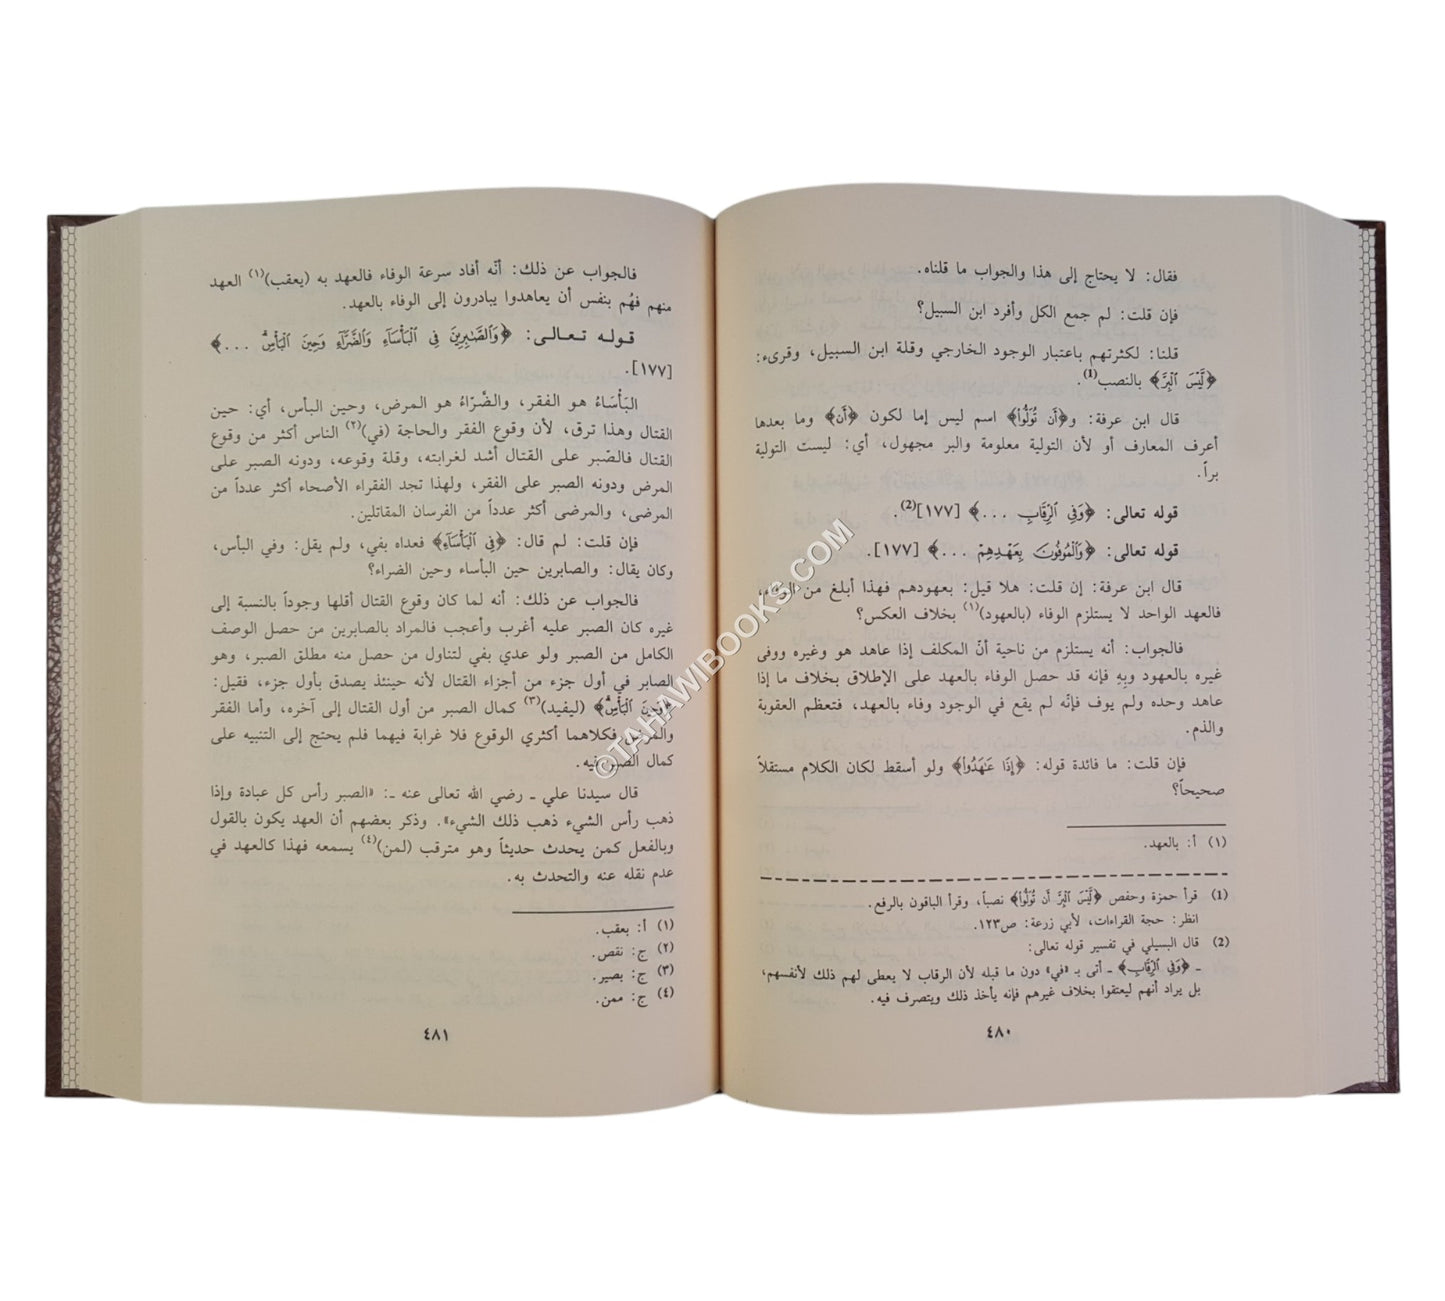 فقال: لا يحتاج إلى هذا والجواب ما قلناه.
فإن قلت: لم جمع الكل وأفرد ابن السبيل؟
قلنا: لكثرتهم باعتبار الوجود الخارجي وقلة ابن السبيل، وقرىء:
﴿لَّيْسَ ٱلْبِرَّ﴾ بالنصب(1).
قال ابن عرفة: و﴿أَن تُوَلُّوا۟﴾ اسم ليس إما لكون ﴿أَن﴾ وما بعدها
أعرف المعارف أو لأن التولية معلومة والبر مجهول، أي: ليست التولية
براً.
قوله تعالى: ﴿وَفِى ٱلرِّقَابِ ...﴾ [١٧٧](2).
قوله تعالى: ﴿وَٱلْمُوفُونَ بِعَهْدِهِمْ ...﴾ [١٧٧].
قال ابن عرفة: إن قلت: هلا قيل: بعهودهم فهذا أبلغ من الوفاء،
فالعهد الواحد لا يستلزم الوفاء (بالعهود)(١) بخلاف العكس؟
فالجواب: أنه يستلزم من ناحية أنّ المكلف إذا عاهد هو وغيره ووفى
غيره بالعهود وبِهِ فإنه قد حصل الوفاء بالعهد على الإطلاق بخلاف ما إذا
عاهد وحده ولم يوف فإنّه لم يقع في الوجود وفاء بالعهد، فتعظم العقوبة
والذم.
فإن قلت: ما فائدة قوله: ﴿إِذَا عَـٰهَدُوا۟﴾ ولو أسقط لكان الكلام مستقلاً
صحيحاً؟
(١) أ: بالعهد.
(1) قرأ حمزة وحفص ﴿لَّيْسَ ٱلْبِرَّ أَن تُوَلُّوا۟﴾ نصباً، وقرأ الباقون بالرفع.
انظر: حجة القراءات، لأبي زرعة: ص١٢٣.
(2) قال البسيلي في تفسير قوله تعالى:
ـ ﴿وَفِى ٱلرِّقَابِ﴾ ـ أتى بـ «في» دون ما قبله لأن الرقاب لا يعطى لهم ذلك لأنفسهم،
بل يراد أنهم ليعتقوا بخلاف غيرهم فإنه يأخذ ذلك ويتصرف فيه.
٤٨٠
فالجواب عن ذلك: أنّه أفاد سرعة الوفاء فالعهد به (يعقب)(١) العهد
منهم فهُم بنفس أن يعاهدوا يبادرون إلى الوفاء بالعهد.
قوله تعالى: ﴿وَٱلصَّـٰبِرِينَ فِى ٱلْبَأْسَآءِ وَٱلضَّرَّآءِ وَحِينَ ٱلْبَأْسِ ۗ ...﴾
[١٧٧].
البَأْسَاءُ هو الفقر، والضّرّاءُ هو المرض، وحين البأس، أي: حين
القتال وهذا ترق، لأن وقوع الفقر والحاجة (في)(٢) الناس أكثر من وقوع
القتال فالصّبر على القتال أشد لغرابته، وقلة وقوعه، ودونه الصبر على
المرض ودونه الصبر على الفقر، ولهذا تجد الفقراء الأصحاء أكثر عدداً من
المرضى، والمرضى أكثر عدداً من الفرسان المقاتلين.
فإن قلت: لم قال: ﴿فِى ٱلْبَأْسَآءِ﴾ فعداه بفي، ولم يقل: وفي البأس،
وكان يقال: والصابرين حين البأساء وحين الضراء؟
فالجواب عن ذلك: أنه لما كان وقوع القتال أقلها وجوداً بالنسبة إلى
غيره كان الصبر عليه أغرب وأعجب فالمراد بالصابرين من حصل الوصف
الكامل من الصبر ولو عدي بفي لتناول من حصل منه مطلق الصبر، وهو
الصابر في أول جزء من أجزاء القتال لأنه حينئذ يصدق بأول جزء، فقيل:
﴿وَحِينَ ٱلْبَأْسِ ۗ﴾ (ليفيد)(٣) كمال الصبر من أول القتال إلى آخره، وأما الفقر
والمرض فكلاهما أكثري الوقوع فلا غرابة فيهما فلم يحتج إلى التنبيه على
كمال الصبر فيه.
قال سيدنا علي ـ رضي الله تعالى عنه ـ: «الصبر رأس كل عبادة وإذا
ذهب رأس الشيء ذهب ذلك الشيء». وذكر بعضهم أن العهد يكون بالقول
وبالفعل كمن يحدث حديثاً وهو مترقب (لمن)(٤) يسمعه فهذا كالعهد في
عدم نقله عنه والتحدث به.
(١) أ: بعقب.
(٢) ج: نقص.
(٣) ج: بصير.
(٤) ج: ممن.
٤٨١
©TAHAWIBOOKS.COM